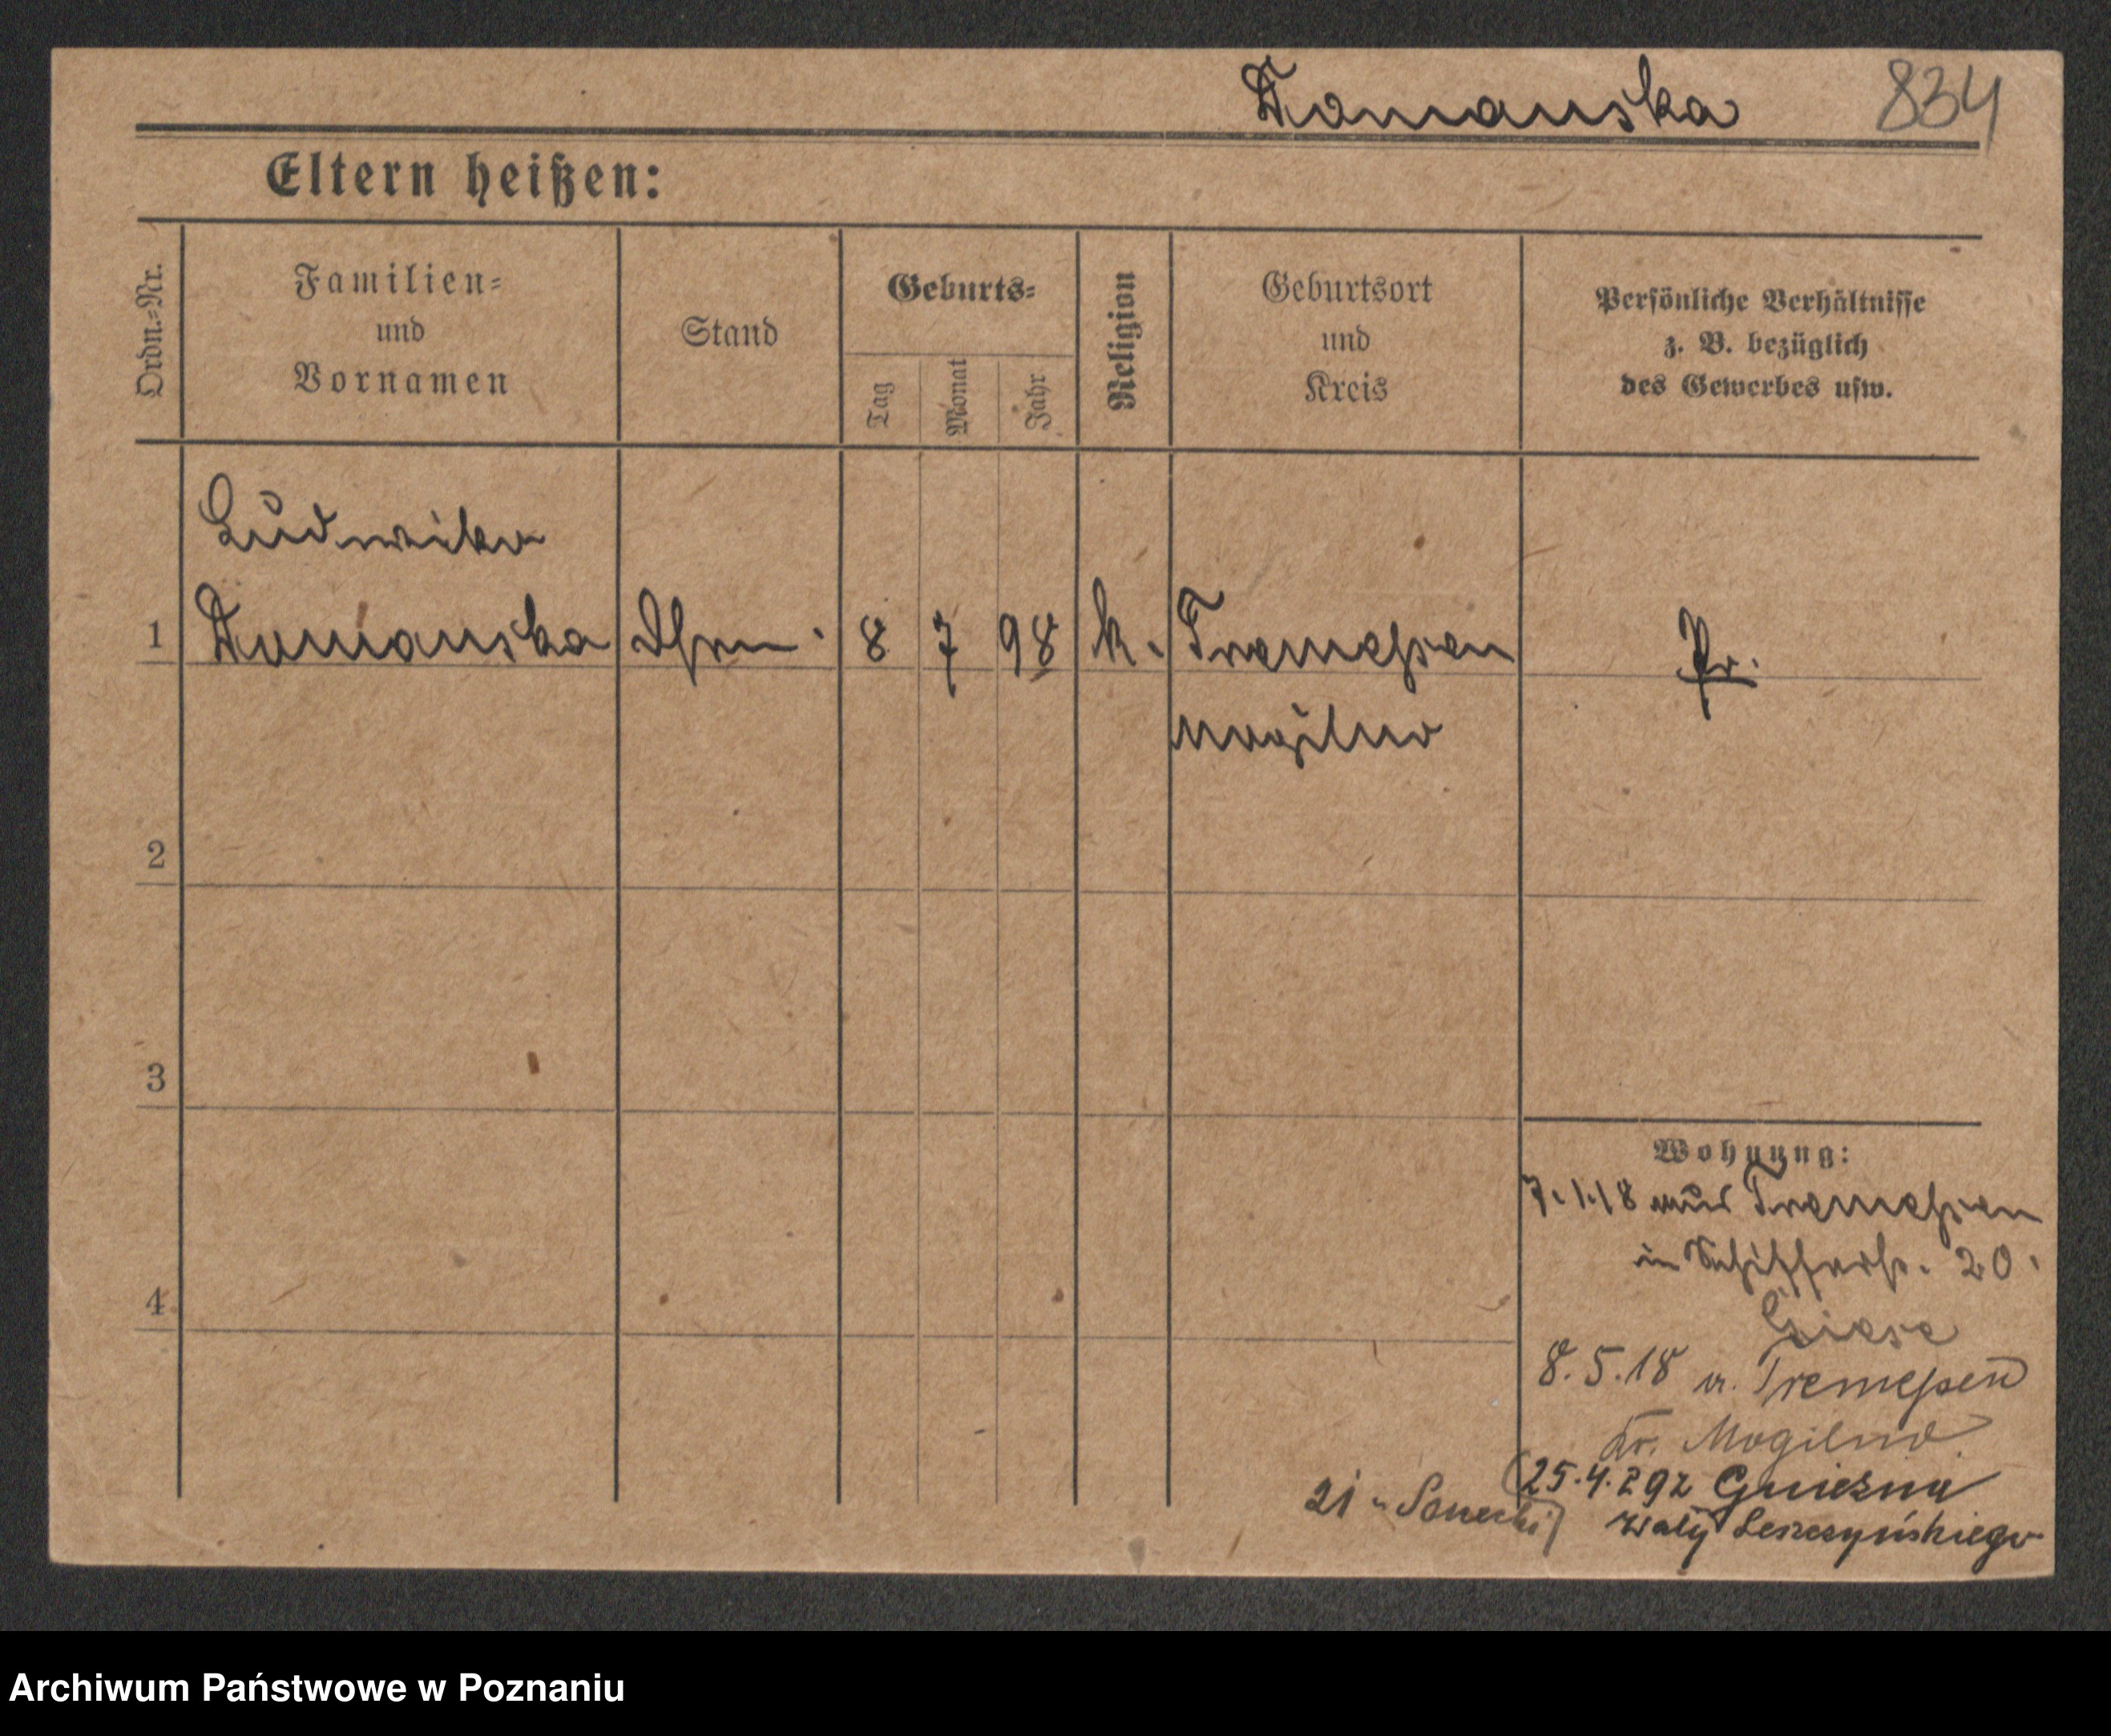 Domanska 834
Eltern heißen:
Ordn.=Nr.
Familien=
und
Vornamen
Stand
Geburts=
Tag
Monat
Jahr
Religion
Geburtsort
und
Kreis
Persönliche Verhältnisse
z. B. bezüglich
des Gewerbes usw.
Ludwika
1 Domanska 8 7 98 k. Tremessen Pr.
Mogilno
2
3
4
Wohnung:
7.1.18 aus Tremessen
in Schifferstr. 20.
Giese
8.5.18 n. Tremessen
Kr. Mogilno
25.4.29 z Gniezna
21
Wały Leszczyńskiego
Archiwum Państwowe w Poznaniu